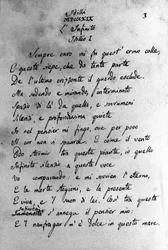 3
Idilli
MDCCCXIX
L'Infinito
Idillio I
Sempre caro mi fu quest'ermo colle,
E questa siepe, che da tanta parte
De l'ultimo orizzonte il guardo esclude.
Ma sedendo e mirando, interminato
Spazio di là da quella, e sovrumani
Silenzi, e profondissima quiete
Io nel pensier mi fingo, ove per poco
Il cor non si spaura. E come il vento
Odo stormir tra queste piante, io quello
Infinito silenzio a questa voce
Vo comparando: e mi sovvien l'eterno,
E le morte stagioni, e la presente
E viva, e 'l suon di lei. Così tra questa
Immensità s'annega il pensier mio:
E 'l naufragar m'è dolce in questo mare.